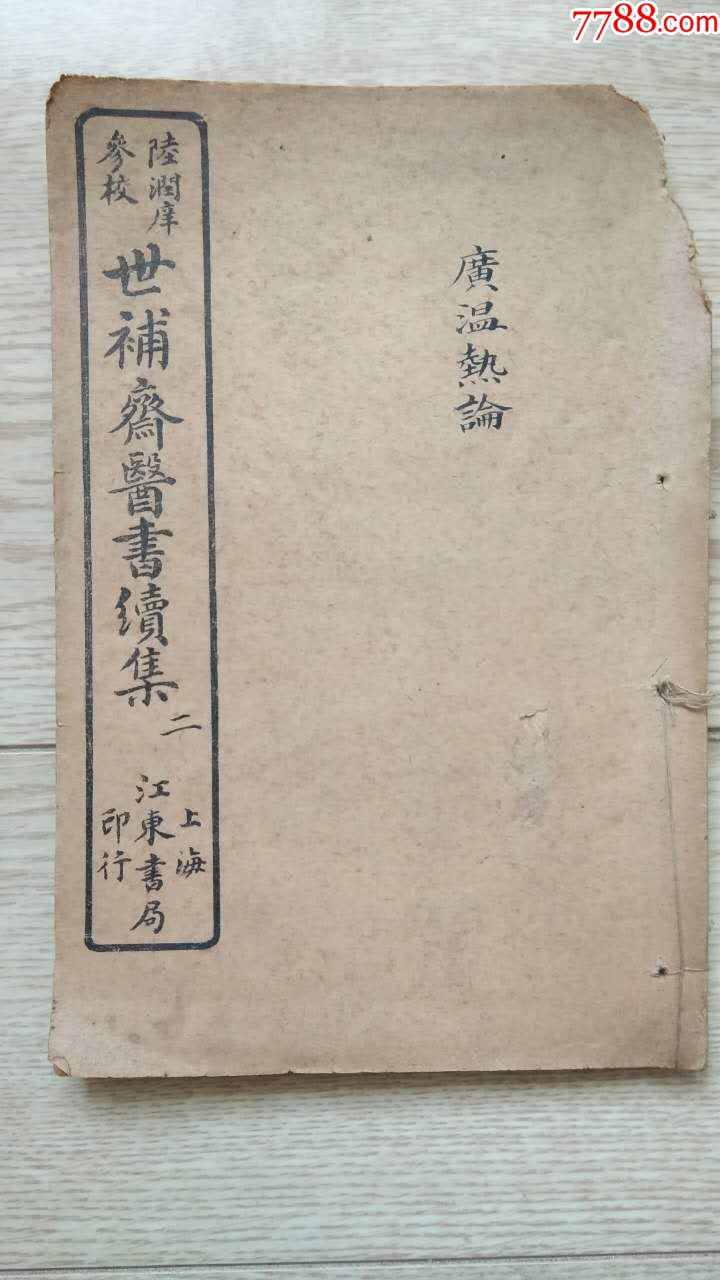 7788.com
中国收藏热线
廣温熱論
陸潤庠
參校
世補齋醫書續集 二
上海
江東書局
印行